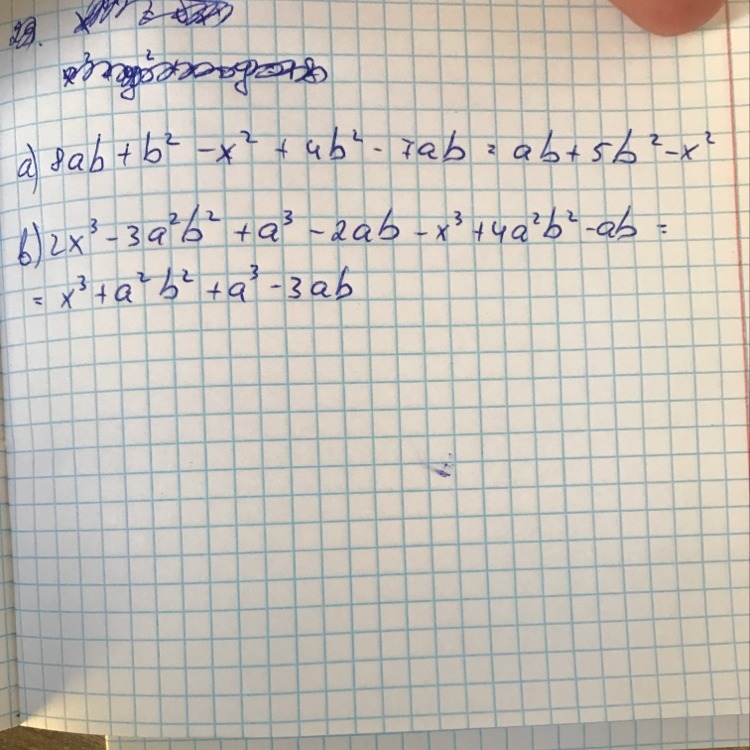 29.
а) 8ab + b² - x² + 4b² - 7ab = ab + 5b² - x²
в) 2x³ - 3a²b² + a³ - 2ab - x³ + 4a²b² - ab =
= x³ + a² b² + a³ - 3ab